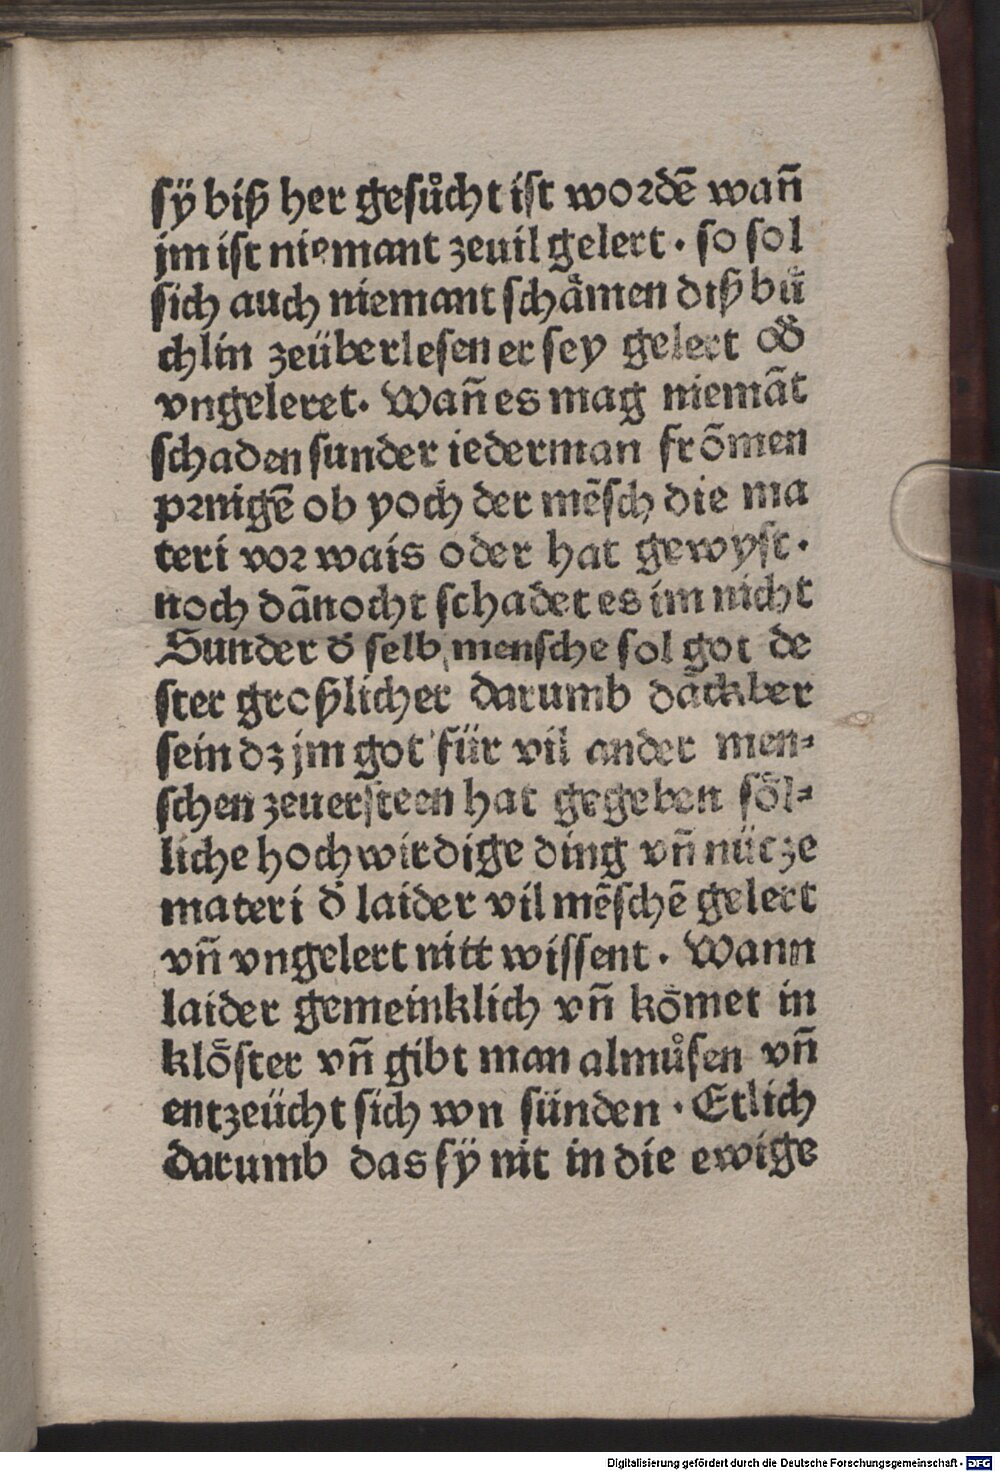 sÿ biß her gesůcht ist wordē wañ
jm ist niemant zeuil gelert · so sol
sich auch niemant schåmen diß bů
chlin zeüberlesen er sey gelert od̓
vngeleret · Wañ es mag niemāt
schaden sunder iederman frõmen
prnigē ob yoch der mēsch die ma
teri vor wais oder hat gewyst ·
noch dānocht schadet es im nicht
Sunder d̓ selb mensche sol got de
ster großlicher darumb dāckber
sein dz jm got für vil ander men⸗
schen zeuersteen hat gegeben söl⸗
liche hochwirdige ding vñ nücze
materi d̓ laider vil mēschē gelert
vñ vngelert nitt wissent · Wann
laider gemeinklich vñ kõmet in
klöster vñ gibt man almůsen vñ
entzeücht sich wn sünden · Etlich
darumb das sÿ nit in die ewige
Digitalisierung gefördert durch die Deutsche Forschungsgemeinschaft - DFG